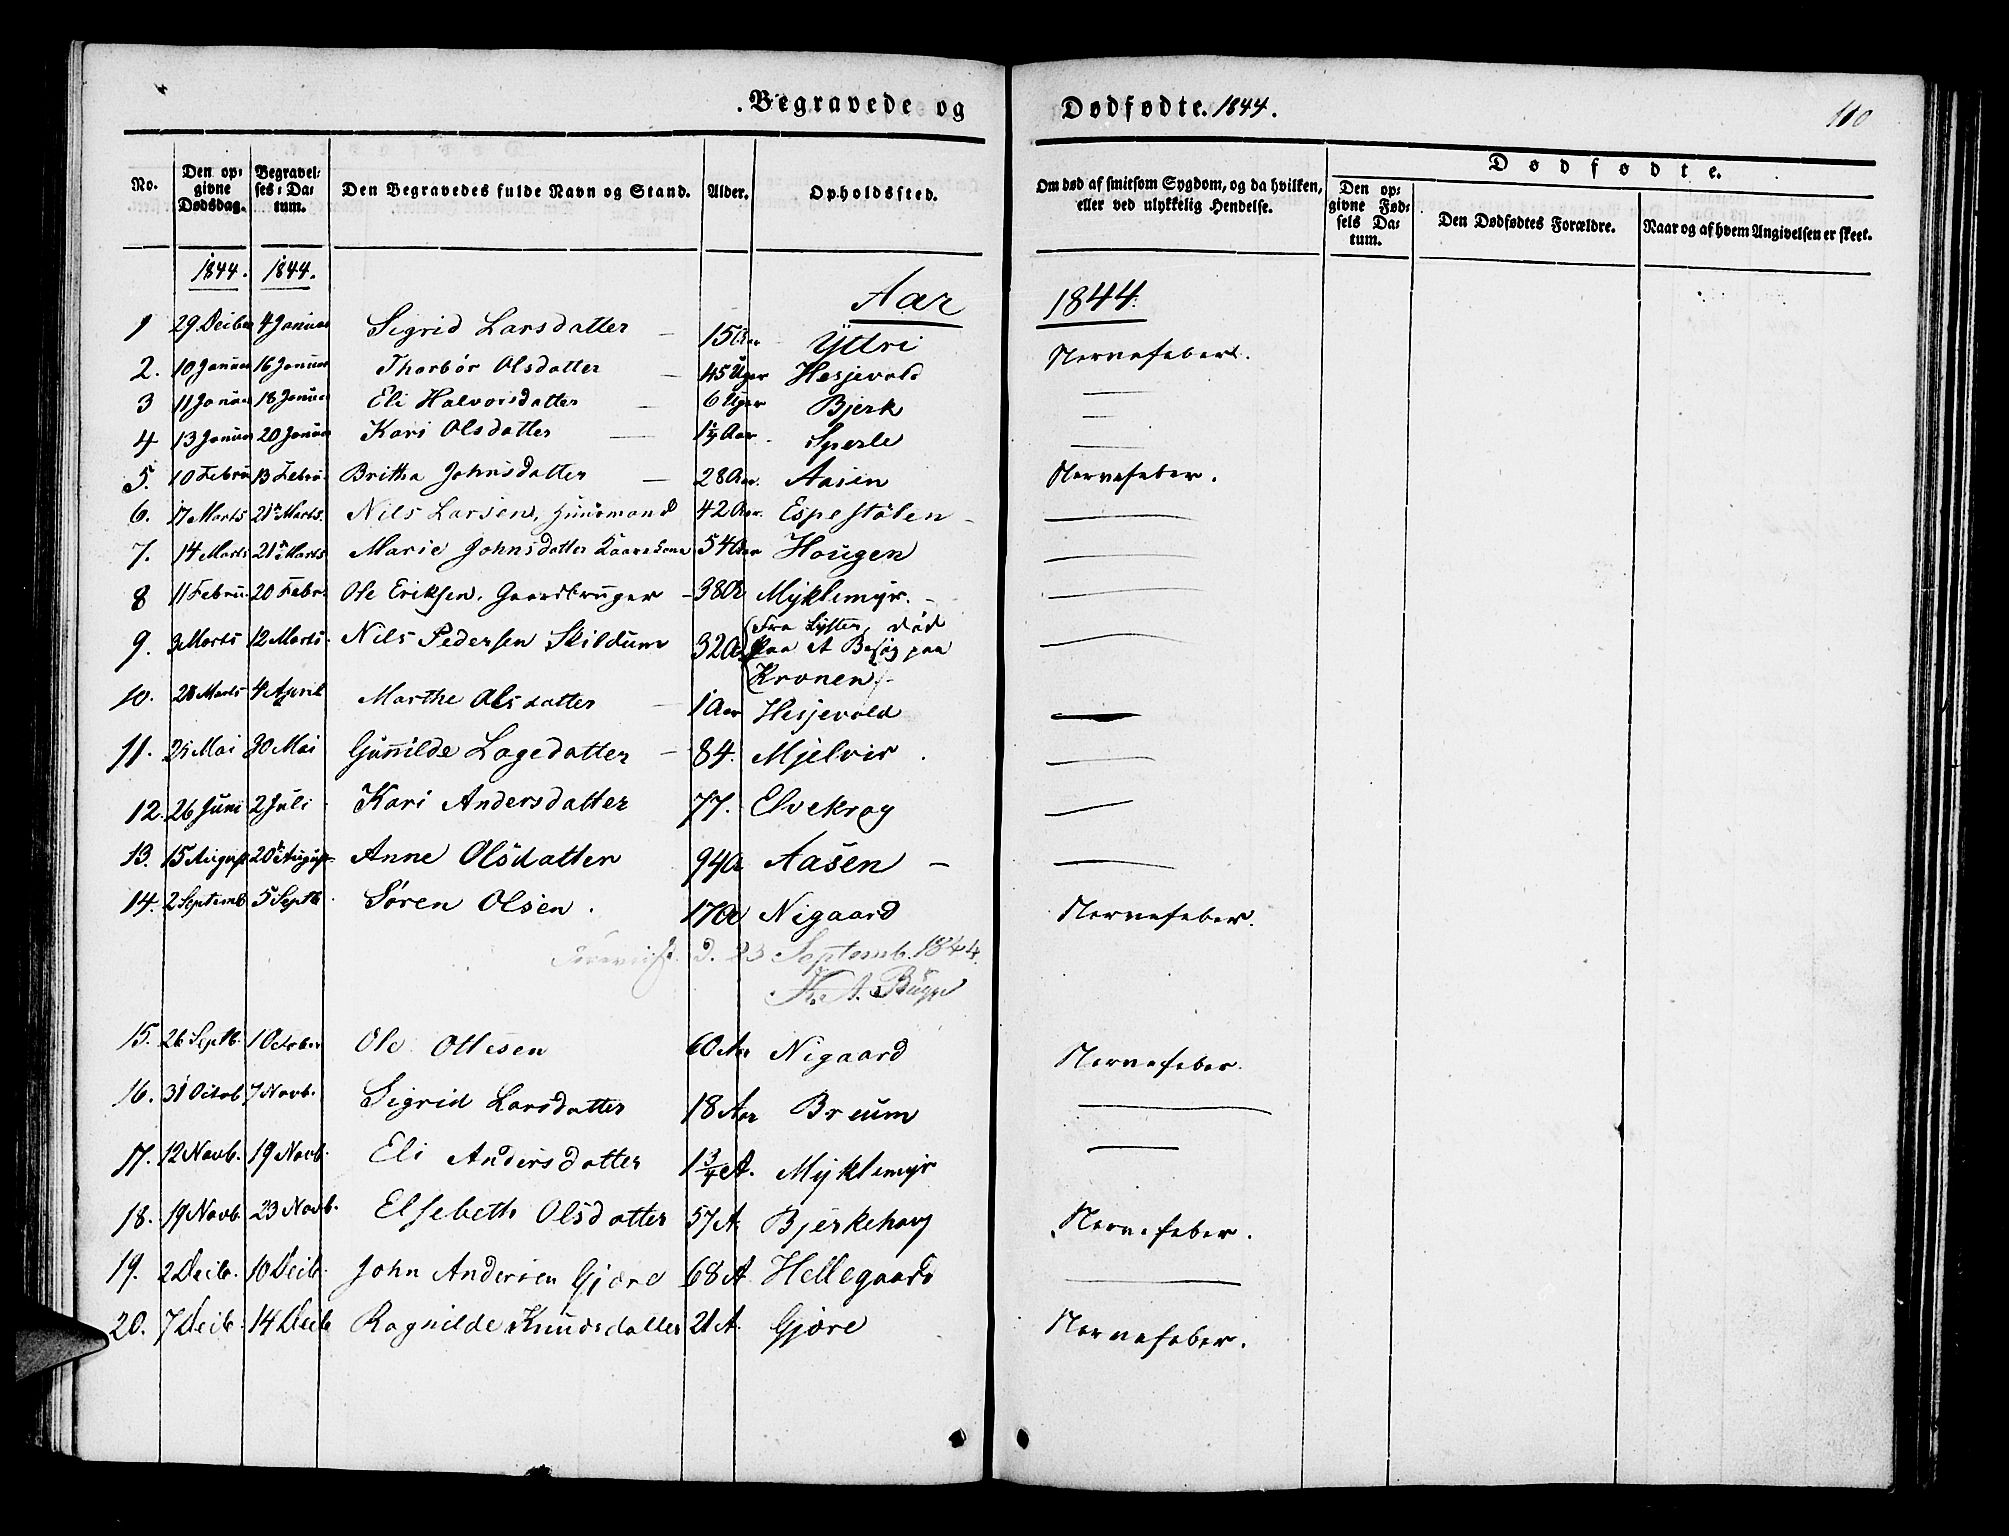 Begravede og Dødfødte. 1844.
110
No. Den opgivne Dødsdag. Begravelses-Datum. Den Begravedes fulde Navn og Stand. Alder. Opholdssted. Om død af smitsom Sygdom, og da hvilken, eller ved ulykkelig Hendelse. Dødfødte. Den opgivne Fødsels Datum. Den Dødfødtes Forældre. Naar og af hvem Angivelsen er skeet.
1844. 1844. Aar 1844.
1 29 Decbr 4 Januar Sigrid Larsdatter — 15 Aar Yttri Nervefeber.
2. 10 Januar 16 Januar Thorbør Olsdatter — 45 Uger Hesjevold —
3 11 Januar 18 Januar Eli Halvorsdatter — 6 Uger Bjerk —
4 13 Januar 20 Januar Kari Olsdatter — 1½ Aar Sperle —
5. 10 Febru 13 Febru. Britha Johnsdatter — 28 Aar. Aasen Nervefeber.
6. 17 Marts 21de Marts. Nils Larsen, Huusmand 42 Aar. Espestølen —
7. 14 Marts 21de Marts Marie Johnsdatter Kaarekone 54 Aar Hougen —
8 11 Febru. 20 Febr. Ole Eriksen, Gaardbruger — 38 A Myklemyr. —
9. 3 Marts 12 Marts. Nils Pedersen Skildum 32 A (Fra Lyster, død paa et Besøg paa Kronen) —
10. 28 Marts 4 April Marthe Olsdatter — 1 Aar Hesjevold —
11. 25 Mai 30 Mai Gunnilde Lagedatter — 84. Mjelvir. —
12. 26 Juni 2 Juli Kari Andersdatter 77. Elvekrog —
13. 15 August 20de August Anne Olsdatter 94 A Aasen —
14. 2 Septemb 5 Septb. Søren Olsen. 17 A Nigaard Nervefeber.
Foreviist. d. 23 Septemb. 1844.
A. Bugge
15. 26 Septb. 1 October Ole Ottesen 60 Aar Nigaard Nervefeber.
16. 31 Octob 7 Novb. Sigrid Larsdatter 18 Aar Breum —
17. 12 Novb. 19 Novb. Eli Andersdatter 1¾ A. Myklemyr —
18. 19 Novb. 23 Novb. Elsebeth Olsdatter 57 A. Bjerkehoug Nervefeber.
19. 2 Decb. 10 Decb. John Andersen Gjøre 68 A Hellegaard —
20. 7 Decb. 14 Decb Ragnilde Knudsdatter 21 A. Gjøre Nervefeber.